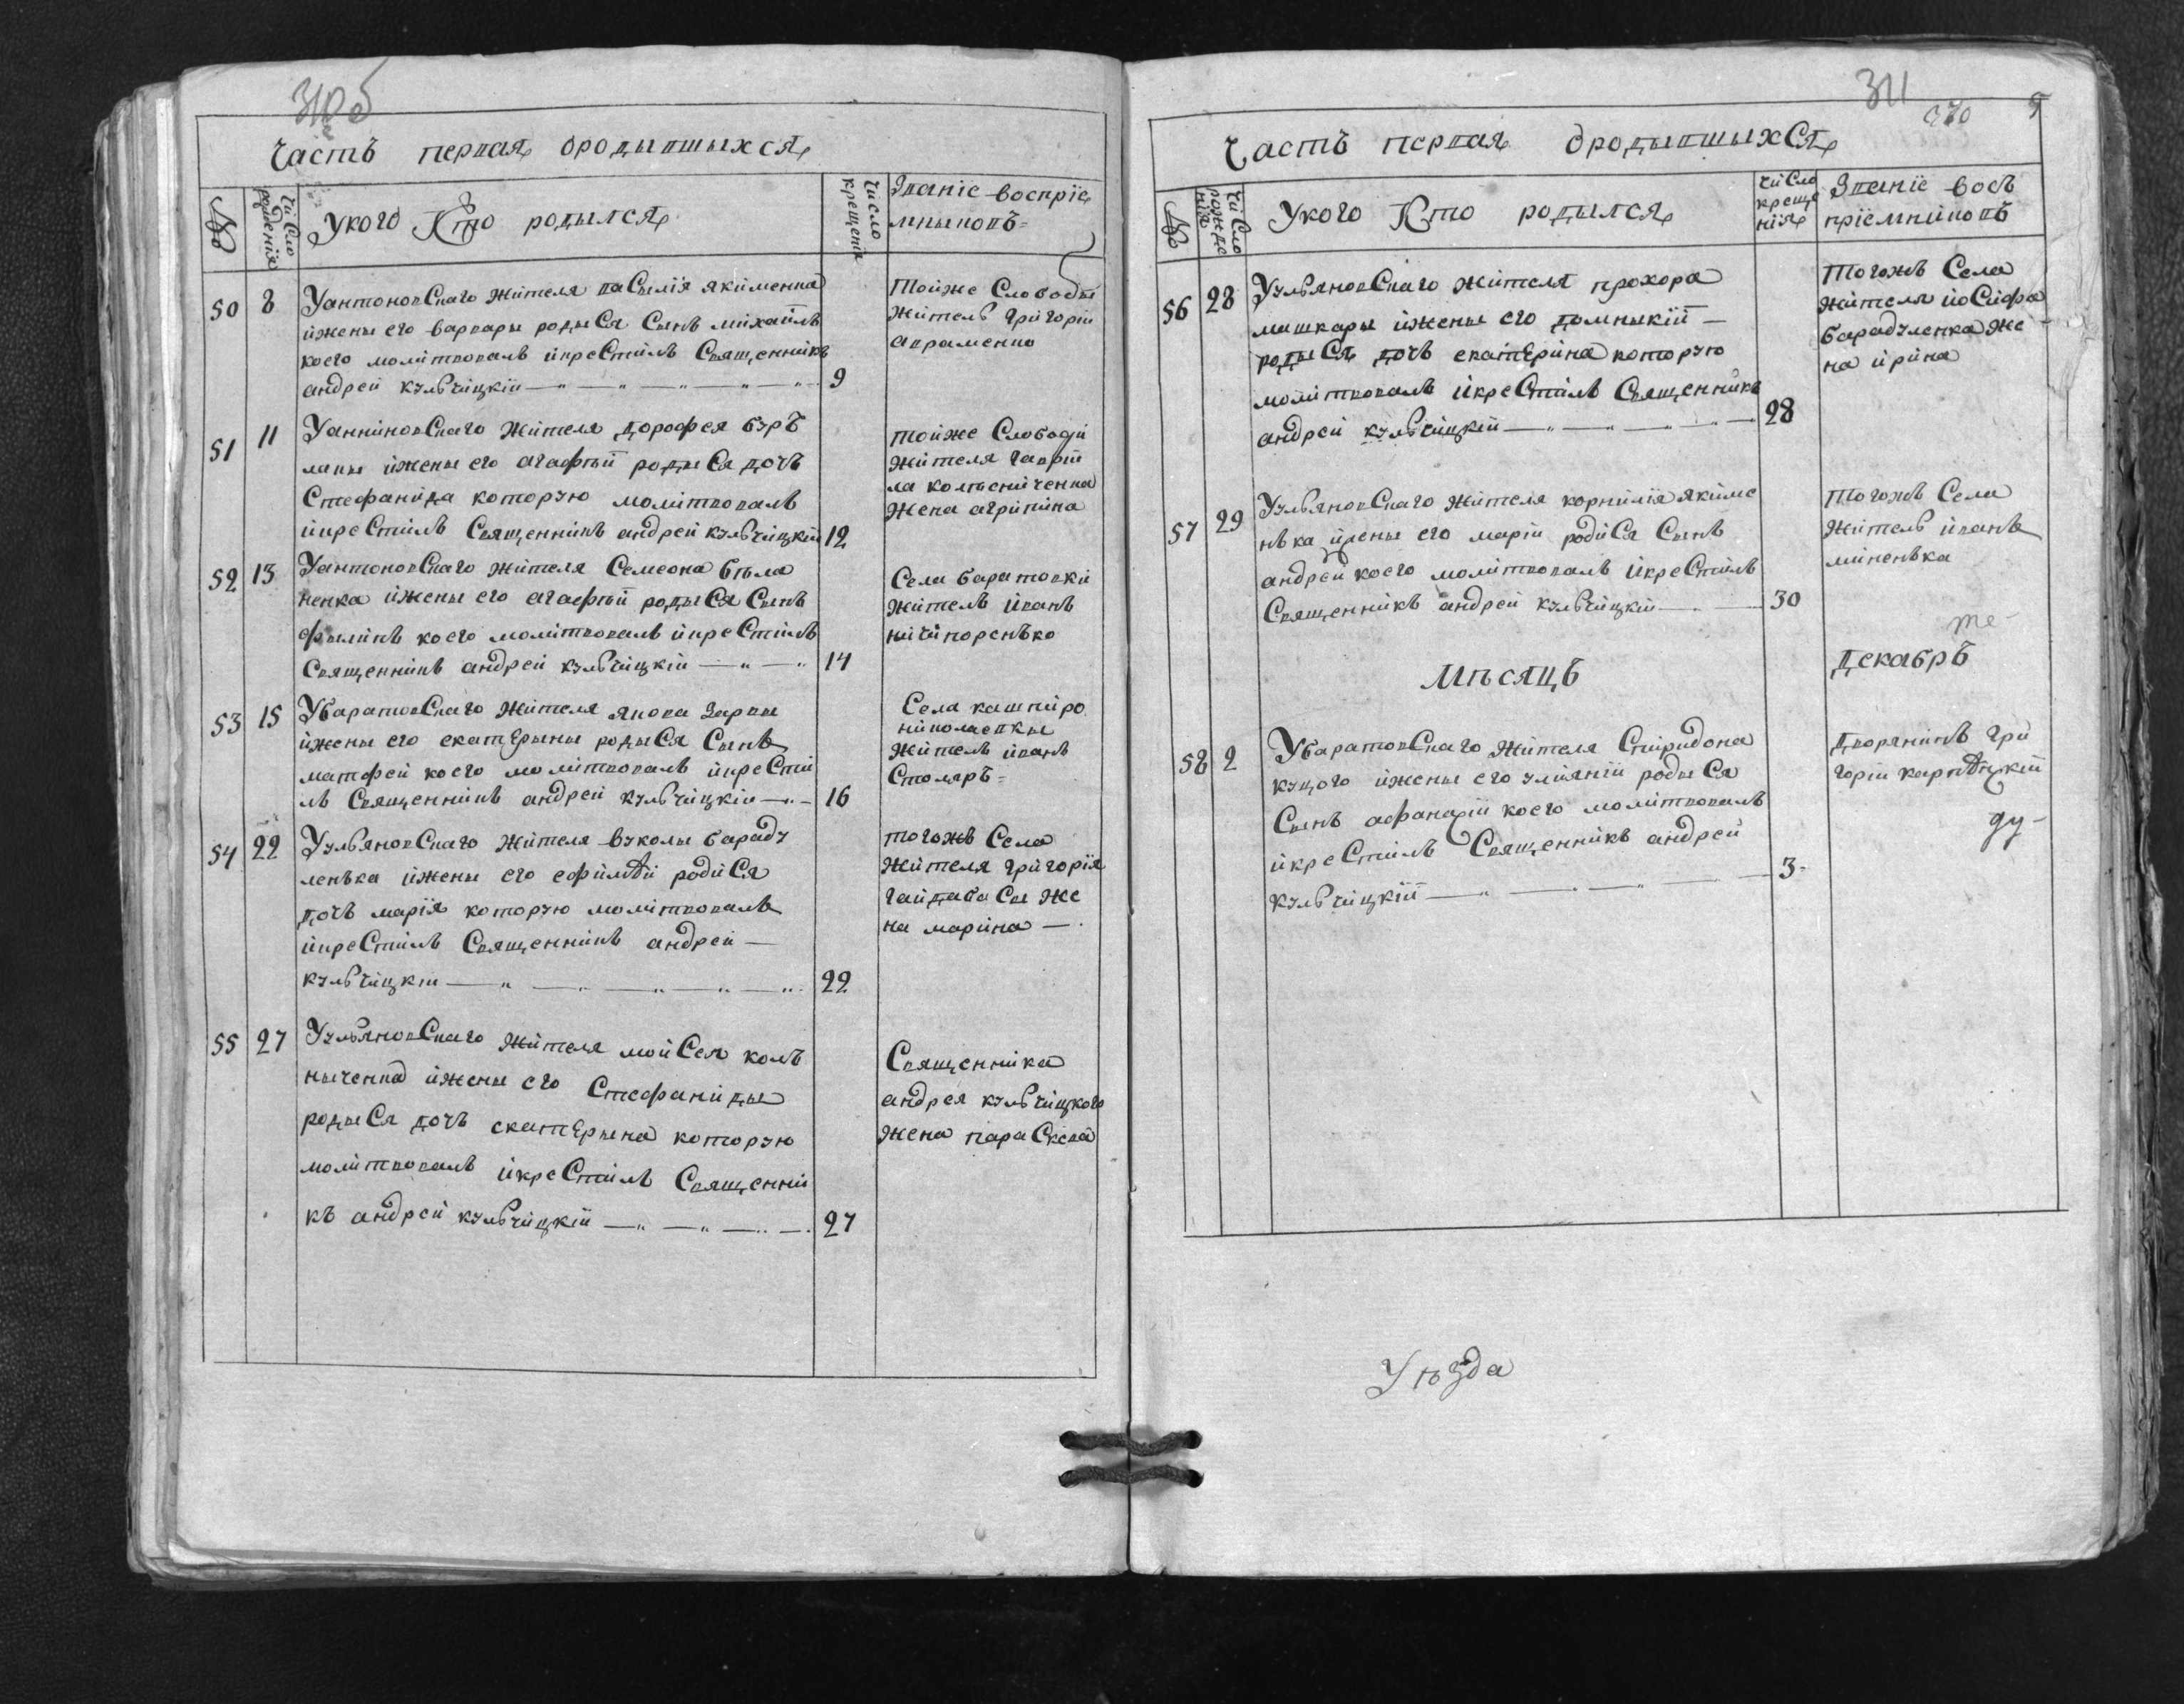 310б
Часть первая ородывшыхся
№
число рождения
Укого Кто родылся
число крещения
Званіе воспріе
мныковъ=
50 8 УантоновСкаго жителя ваСылія якименка
ижены его варвары родыСя Сынъ михаилъ
коего молитвовалъ икреСтилъ Священникъ
андрей кульчицкій 9
Тойже Слободы
житель григорій
авраменко
51 11 УанниновСкаго жителя дорофея буръ
лапы ижены его агафіи родыСя дочъ
Стефанида которую молитвовалъ
икреСтилъ Священникъ андрей кульчицкій 12
тойже Слободи
жителя гаврій
ла колѣсниченка
жена агрипина
52 13 УантоновСкаго жителя Семеона бѣла
ненка ижены его агафіи родыСя Сынъ
фылипъ коего молитвовалъ икреСтилъ
Священникъ андрей кульчицкій 14
Села баратовки
житель иванъ
ничипоренъко
53 15 УбаратовСкаго жителя якова
ижены его екатерыны родыСя Сынъ
матфей коего молитвовалъ икреСти
лъ Священникъ андрей кульчицкій 16
Села кашпиро
николаевкы
житель иванъ
Столяръ=
54 22 УульяновСкаго жителя вуколы бараду
ленъка ижены его ефиміи родиСя
дочъ марія которую молитвовалъ
икреСтилъ Священникъ андрей
кульчицкій 22
тогожъ Села
жителя григорія
гайдабаСы же
на марина
55 27 УульяновСкаго жителя мойСея колѣ
ныченка ижены его Стефаниды
родыСя дочъ екатерына которую
молитвовалъ икреСтилъ Священни
къ андрей кульчицкій 27
Священника
андрея кульчицкого
жена параСкева
311
5
Часть первая ородывшыхСя
№
чиСло рожде
нія
Укого Кто родылся
чиСло
креще
нія
Званіе восъ
пріемниковъ
56 28 УульяновСкаго жителя прохора
машкары ижены его домныкіи
родыСя дочъ екатерина которую
молитвовалъ икреСтилъ Священникъ
андрей кульчицкій 28
тогожъ Села
жителя иоСифа
барадуленка же
на ирина
57 29 УульяновСкаго жителя корнилія якиме
нъка ижены его маріи родиСя Сынъ
андрей коего молитвовалъ икреСтилъ
Священникъ андрей кульчицкій 30
тогожъ Села
житель иванъ
миненъка
те-
Мѣсяцъ декабръ
58 2 УбаратовСкаго жителя Спиридона
куцого ижены его уліяніи родыСя
Сынъ афанасій коего молитвовалъ
икреСтилъ Священникъ андрей
кульчицкій 3
дворянинъ гри
горій
ду-
Уѣзда